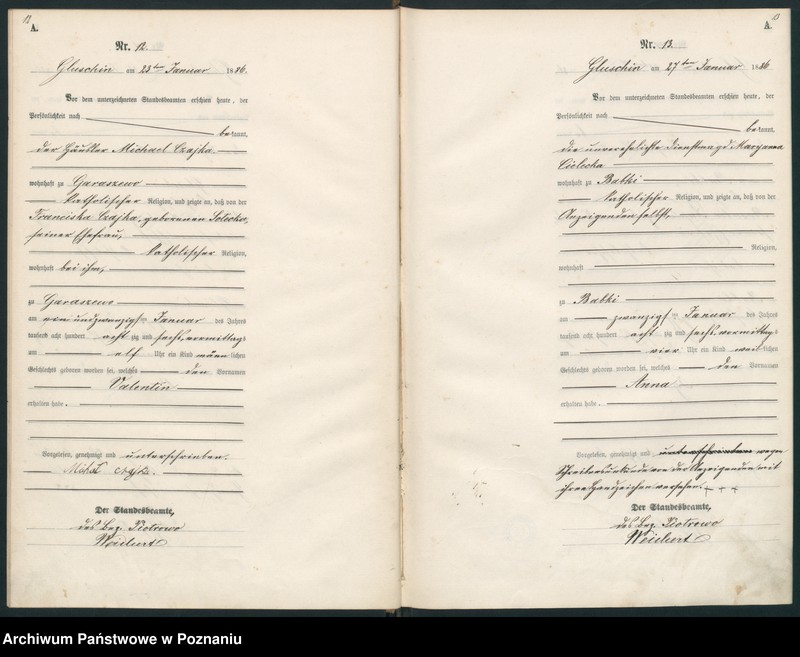 12
A.
Nr. 12.
Gluschin am 23ten Januar 1886.
Vor dem unterzeichneten Standesbeamten erschien heute, der
Persönlichkeit nach
bekannt,
der Häusler Michael Czajka
wohnhaft zu Garaszewo
katholischer Religion, und zeigte an, daß von der
Franciska Czajka, geborenen Solecka,
seiner Ehefrau,
katholischer Religion,
wohnhaft bei ihm,
zu Garaszewo
am ein und zwanzigsten Januar des Jahres
tausend acht hundert acht zig und sechs, vormittags
um elf Uhr ein Kind männlichen
Geschlechts geboren worden sei, welches den Vornamen
Valentin
erhalten habe.
Vorgelesen, genehmigt und unterschrieben.
Michał Czajka.
Der Standesbeamte,
des Bez. Piotrowo
13
A.
Nr. 13.
Gluschin am 27ten Januar 1886
Vor dem unterzeichneten Standesbeamten erschien heute, der
Persönlichkeit nach
bekannt,
die unverehelichte Dienstmagd Maryanna
Cielecha
wohnhaft zu Babki
katholischer Religion, und zeigte an, daß von der
Anzeigenden selbst,
Religion,
wohnhaft
zu Babki
am zwanzigsten Januar des Jahres
tausend acht hundert acht zig und sechs, vormittags
um vier Uhr ein Kind weiblichen
Geschlechts geboren worden sei, welches den Vornamen
Anna
erhalten habe.
Vorgelesen, genehmigt und unterschrieben wegen
Schreibensunkunde von der Anzeigenden mit
ihrem Handzeichen versehen. + + +
Der Standesbeamte,
des Bez. Piotrowo
Archiwum Państwowe w Poznaniu